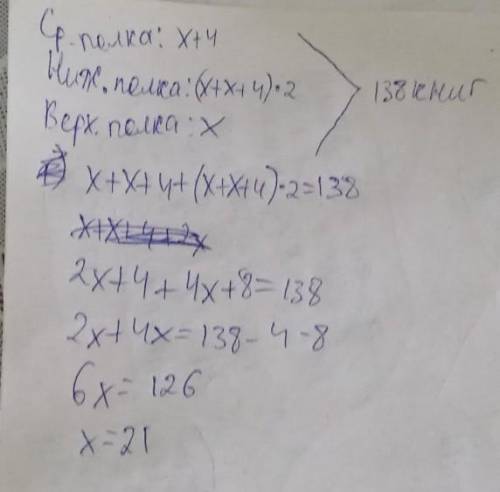 Ср. полка: x+4
Ниж. полка: (x+x+4)·2
138 книг
Верх. полка: x
x+x+4+(x+x+4)·2=138
x+x+4+2x
2x+4+4x+8=138
2x+4x=138-4-8
6x=126
x=21